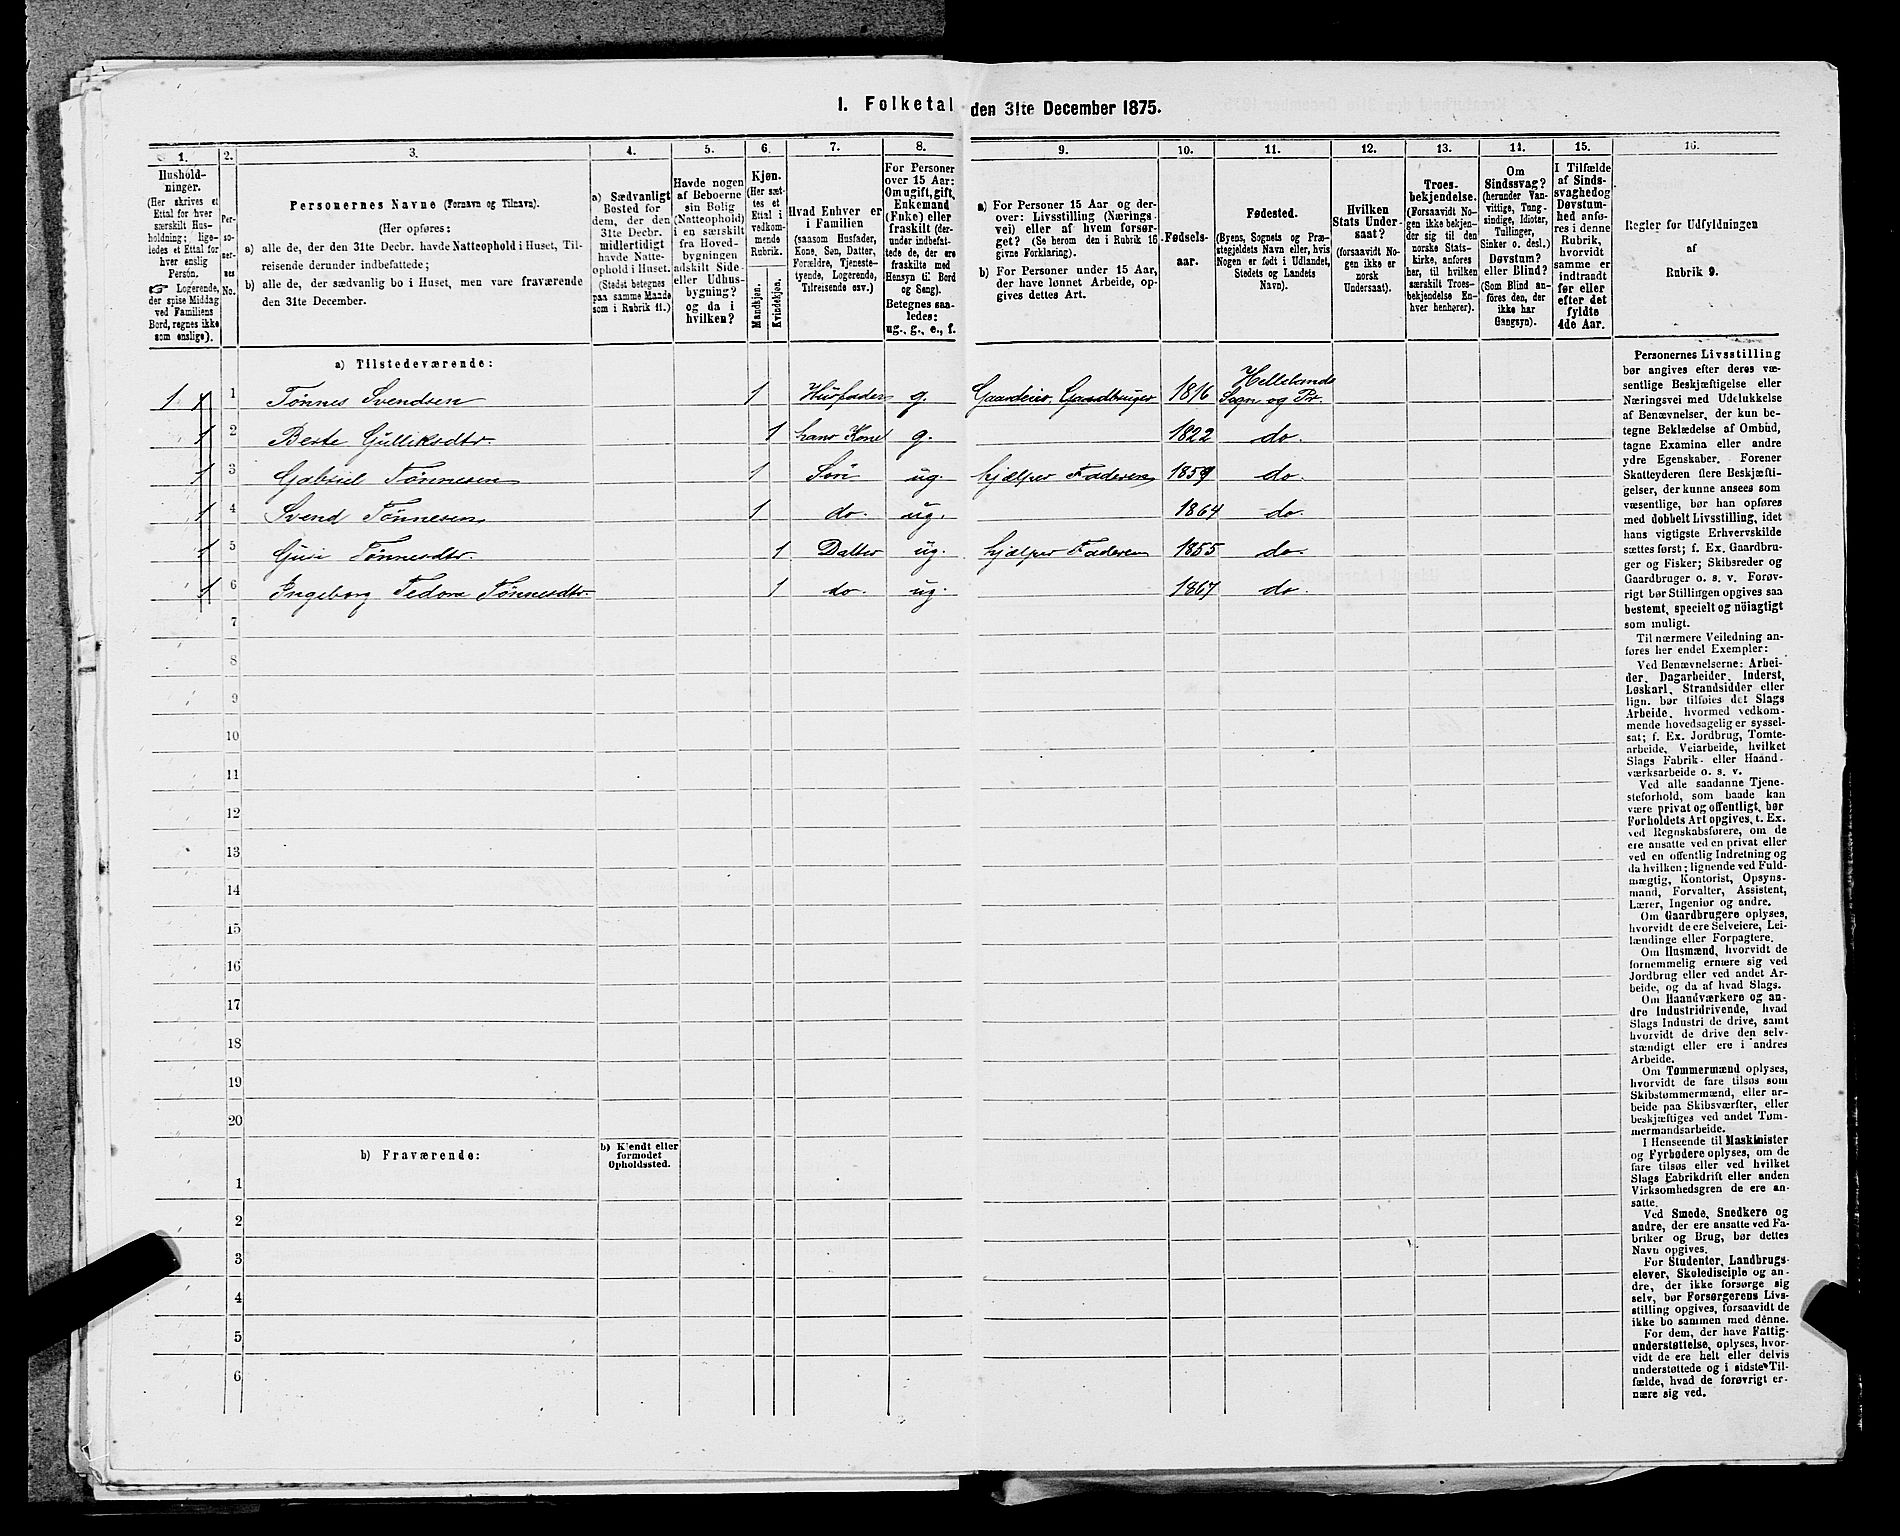 I. Folketal den 31te December 1875.
1.
Hushold-
ninger.
(Her skrives et
Ettal for hver
særskilt Hus-
holdning; lige-
ledes et Ettal for
hver enslig
Person.
☞ Logerende,
der spise Middag
ved Familiens
Bord, regnes ikke
som enslige).
2.
Per-
so-
ner-
nes
No.
3.
Personernes Navne (Fornavn og Tilnavn).
(Her opføres:
a) alle de, der den 31te Decbr. havde Natteophold i Huset, Til-
reisende derunder indbefattede;
b) alle de, der sædvanlig bo i Huset, men vare fraværende
den 31te December.
4.
a) Sædvanligt
Bosted for
dem, der den
31te Decbr.
midlertidigt
havde Natte-
ophold i Huset.
(Stedet betegnes
paa samme Maade
som i Rubrik 11.)
5.
Havde nogen
af Beboerne
sin Bolig
(Natteophold)
i en særskilt
fra Hoved-
bygningen
adskilt Side-
eller Udhus-
bygning?
og da i
hvilken?
6.
Kjøn.
(Her sæt-
tes et
Ettal i
vedkom-
mende
Rubrik.
Mandkjøn.
Kvindekjøn.
7.
Hvad Enhver er
i Familien
(saasom Husfader,
Kone, Søn, Datter,
Forældre, Tjeneste-
tyende, Logerende,
Tilreisende osv.)
8.
For Personer
over 15 Aar:
Om ugift, gift,
Enkemand
(Enke) eller
fraskilt (der-
under indbefat-
tede de, der ere
fraskilte med
Hensyn til Bord
og Seng).
Betegnes saa-
ledes:
ug., g., e., f.
9.
a) For Personer 15 Aar og der-
over: Livsstilling (Nærings-
vei) eller af hvem forsør-
get? (Se herom den i Rubrik 16
givne Forklaring).
b) For Personer under 15 Aar,
der have lønnet Arbeide, op-
gives dettes Art.
10.
Fødsels-
aar.
11.
Fødested.
(Byens, Sognets og Præ-
stegjeldets Navn eller, hvis
Nogen er født i Udlandet,
Stedets og Landets
Navn).
12.
Hvilken
Stats Under-
saat?
(forsaavidt No-
gen ikke er
norsk
Undersaat).
13.
Troes-
bekjendelse.
(Forsaavidt No-
gen ikke bekjen-
der sig til den
norske Stats-
kirke, anføres
her, til hvilken
særskilt Troes-
bekjendelse En-
hver henhører).
14.
Om
Sindssvag?
(herunder Van-
vittige, Tung-
sindige, Idioter,
Tullinger,
Sinker o. desl.)
Døvstum?
eller Blind?
(Som Blind an-
føres den, der
ikke har
Gangsyn).
15.
I Tilfælde
af Sinds-
svaghed og
Døvstum-
hed anfø-
res i denne
Rubrik,
hvorvidt
samme er
indtraadt
før eller
efter det
fyldte
4de Aar.
16.
Regler for Udfyldningen
af
Rubrik 9.
a) Tilstedeværende:
1 1 1 Tønnes Svendsen 1 Husfader g. Gaardeier, Gaardbruger 1816 Hellelands Sogn og Pr.
1 2 Berte Gulliksdtr. 1 hans Kone g. 1822 do.
1 3 Gabriel Tønnesen 1 Søn ug. hjælper Faderen 1859 do.
1 4 Svend Tønnesen 1 do. ug. 1864 do.
1 5 Gusi Tønnesdtr. 1 Datter ug. hjælper Faderen 1855 do.
1 6 Ingeborg Tedora Tønnesdtr. 1 do. ug. 1867 do.
7
8
9
10
11
12
13
14
15
16
17
18
19
20
b) Fraværende:
b) Kjendt eller
formodet
Opholdssted.
1
2
3
4
5
6
Personernes Livsstilling
bør angives efter deres væ-
sentlige Beskjæftigelse eller
Næringsvei med Udelukkelse
af Benævnelser, der kun be-
tegne Beklædelse af Ombud,
tagne Examina eller andre
ydre Egenskaber. Forener
Skatteyderen flere Beskjæfti-
gelser, der kunne ansees som
væsentlige, bør han opføres
med dobbelt Livsstilling, idet
hans vigtigste Erhvervskilde
sættes først; f. Ex. Gaardbru-
ger og Fisker; Skibsreder og
Gaardbruger o. s. v. Forøv-
rigt bør Stillingen opgives saa
bestemt, specielt og nöiagtigt
som muligt.
Til nærmere Veiledning an-
føres her endel Exempler:
Ved Benævnelserne: Arbei-
der, Dagarbeider, Inderst,
Løskarl, Strandsidder eller
lign. bør tilføies det Slags
Arbeide, hvormed vedkom-
mende hovedsagelig er syssel-
sat; f. Ex. Jordbrug, Tomte-
arbeide, Veiarbeide, hvilket
Slags Fabrik- eller Haand-
værksarbeide o. s. v.
Ved alle saadanne Tjene-
steforhold, som baade kan
være privat og offentligt, bør
Forholdets Art opgives, t. Ex.
ved Regnskabsførere, om de
ere ansatte ved en privat eller
ved en offentlig Indretning og
da hvilken; lignende ved Fuld-
mægtig, Kontorist, Opsyns-
mand, Forvalter, Assistent,
Lærer, Ingeniør og andre.
Om Gaardbrugere oplyses,
hvorvidt de ere Selveiere, Lei-
lændinge eller Forpagtere.
Om Husmænd, hvorvidt de
fornemmelig ernære sig ved
Jordbrug eller ved andet Ar-
beide, og da af hvad Slags.
Om Haandværkere og an-
dre Industridrivende, hvad
Slags Industri de drive, samt
hvorvidt de drive den selv-
stændigt eller ere i andres
Arbeide.
Om Tømmermænd oplyses,
hvorvidt de fare tilsøs som
Skibstømmermænd, eller ar-
beide paa Skibsværfter, eller
beskjæftiges ved andet Tøm-
mermandsarbeide.
I Henseende til Maskinister
og Fyrbødere oplyses, om de
fare tilsøs eller ved hvilket
Slags Fabrikdrift eller anden
Virksomhedsgren de ere an-
satte.
Ved Smede, Snedkere og
andre, der ere ansatte ved Fa-
briker og Brug, bør dettes
Navn opgives.
For Studenter, Landbrugs-
elever, Skoledisciple og an-
dre, der ikke forsørge sig
selv, bør Forsørgerens Livs-
stilling opgives, forsaavidt de
ikke bo sammen med denne.
For dem, der have Fattig-
understøttelse, oplyses, hvor-
vidt de ere helt eller delvis
understøttede og i sidste Til-
fælde, hvad de forøvrigt er-
nære sig ved.